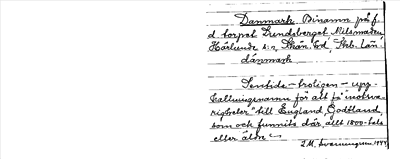 Danmark. Binamn på f.
d torpet Lundsberget Nilsmaden,
Härlunda s:n, Skån. hd, Skb. län:
dánmark
Sentida – troligen – upp-
kallningsnamn för att få motsva-
righeter till England, Gottland,
som och funnits där, allt 1800-tals
eller äldre
I.M. Svenningsson 1944